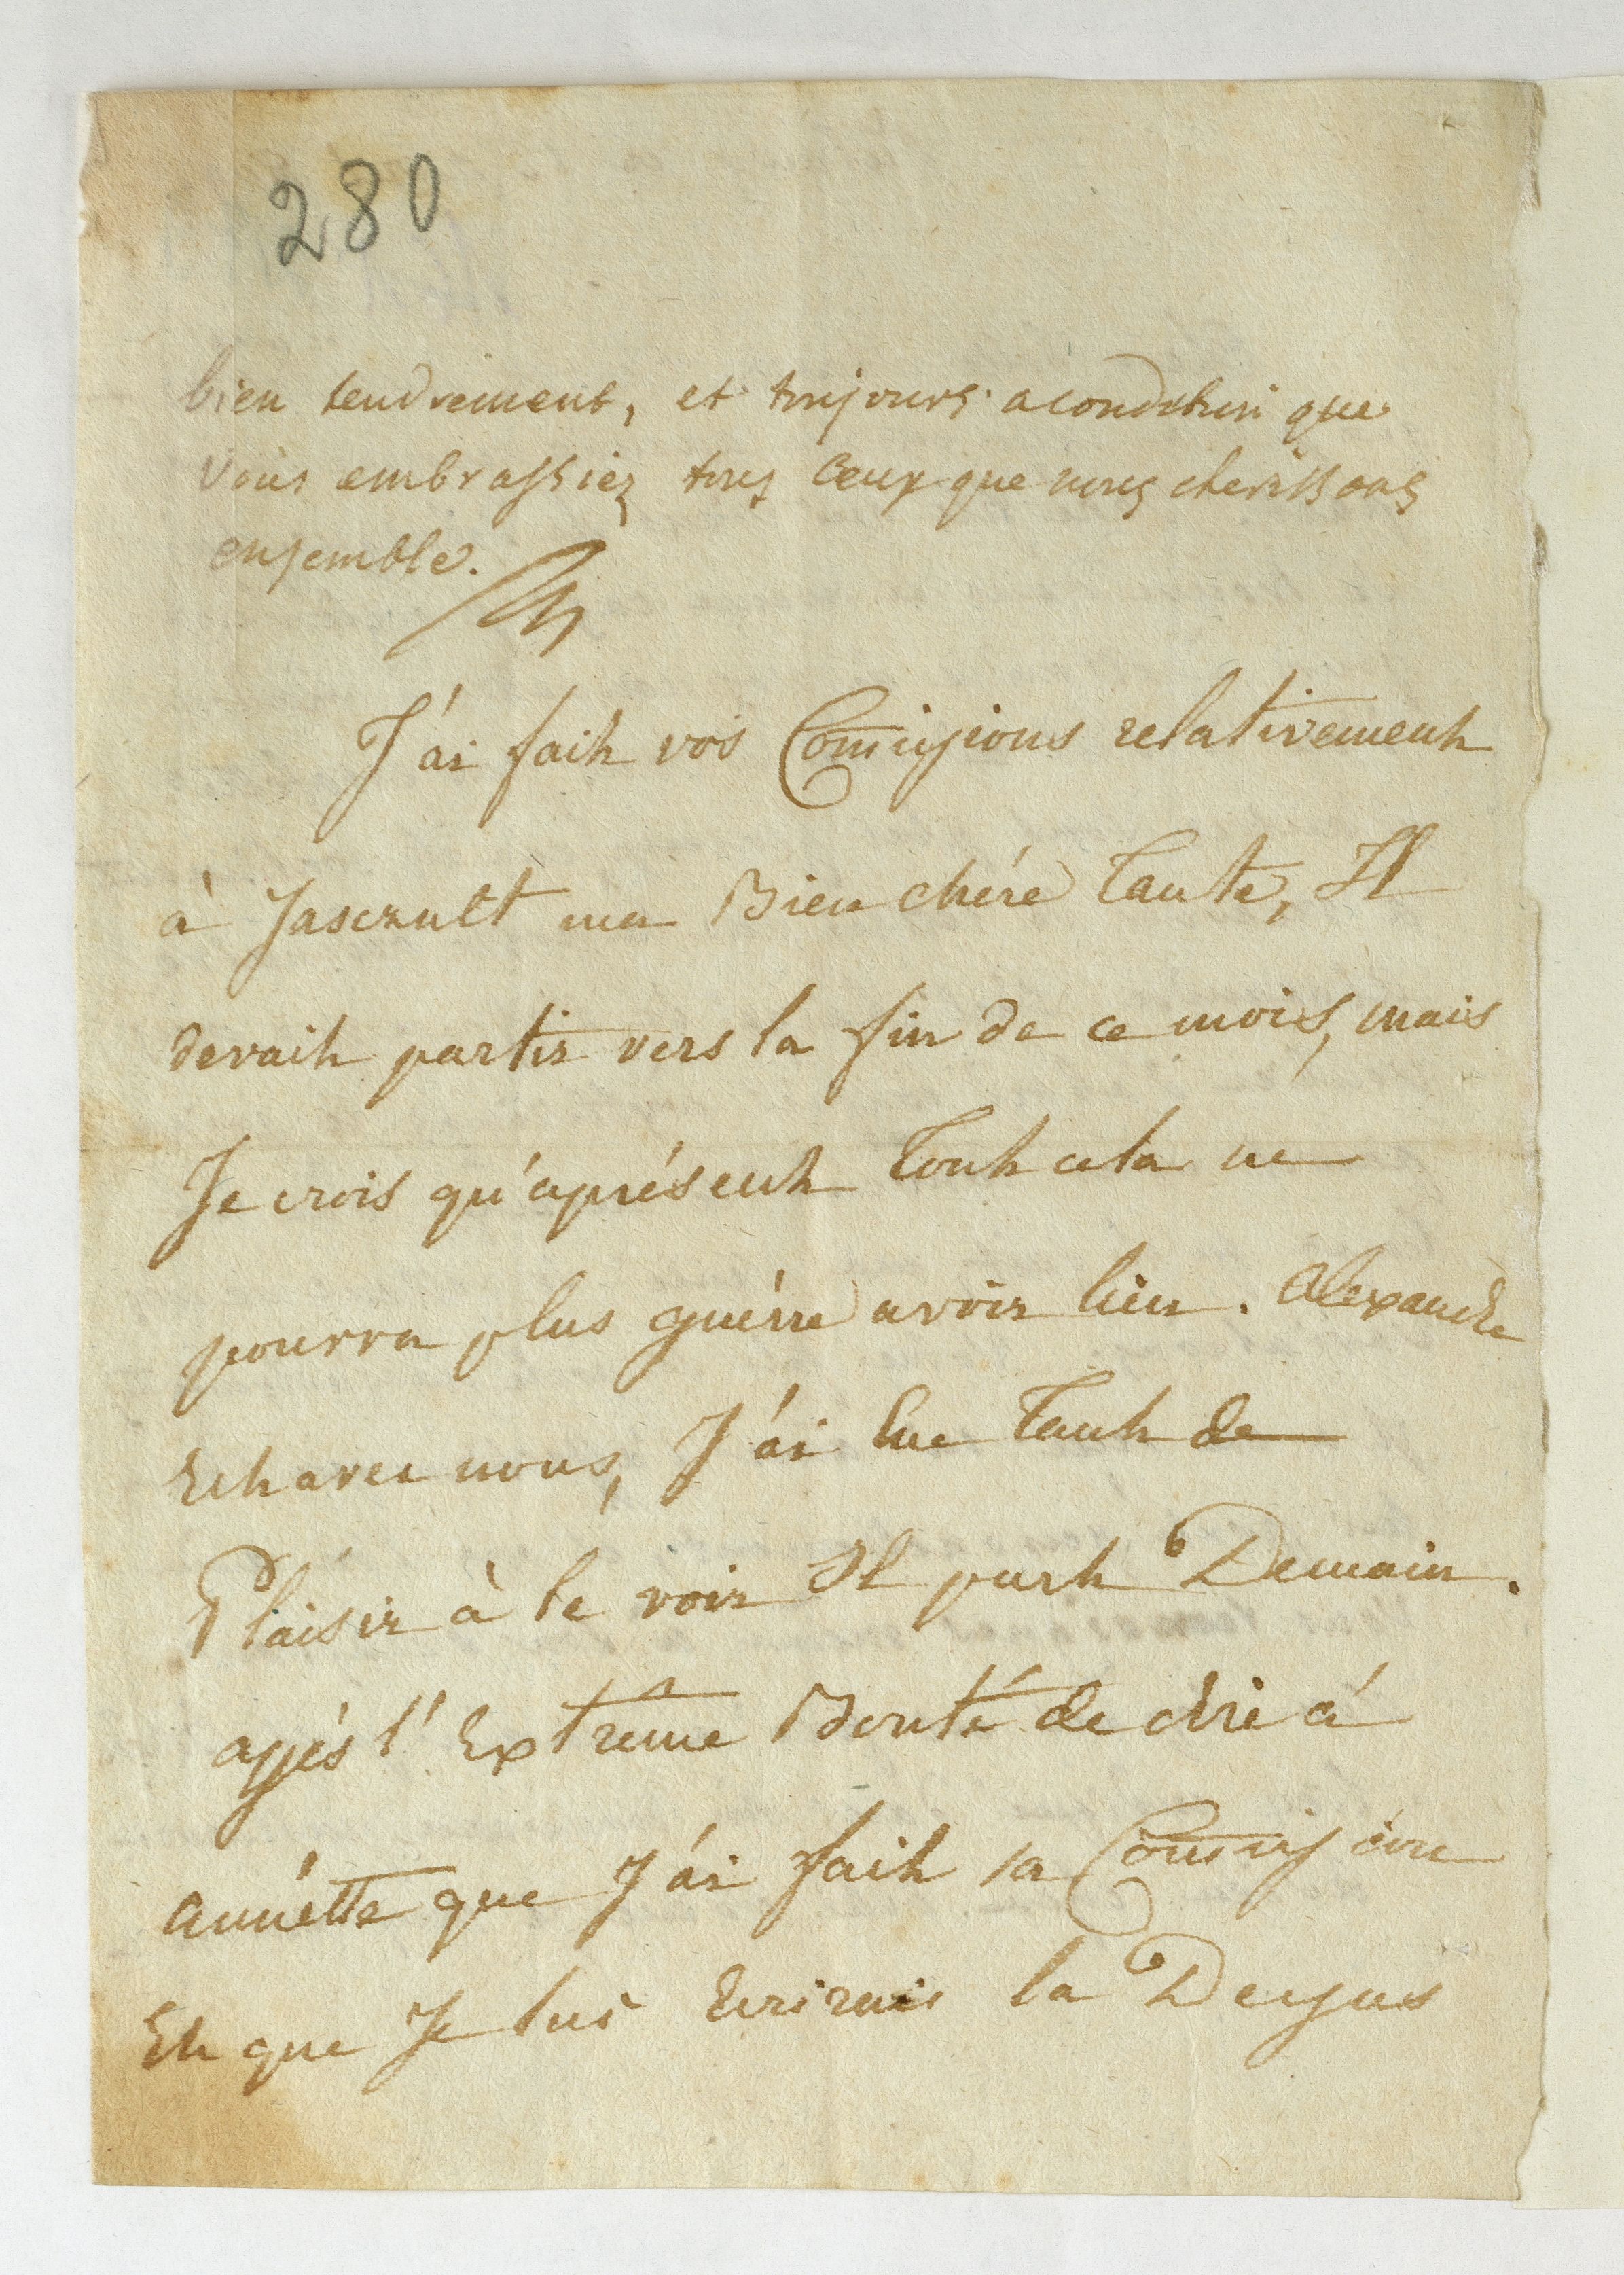 280
bien tendrement, et toujours acondition que
vous embrassiez tous ceux que nous cherissons
ensemble.
J'ai fait vos Comissions relativement
à Jasczult ma Bien chére Tante, Il
devait partir vers la fin de ce mois, mais
Je crois qu'aprésent Tout cela ne
pourra plus guérre avoir lieu. Alexandre
Est avec nous, J'ai Eue Tant de
Plaisir à le voir Il part Demain.
ayés l'Extrême Bonté de dire á
annétte que J'ai fait sa Comission
Et que Je lui Ecrirais la Dessus